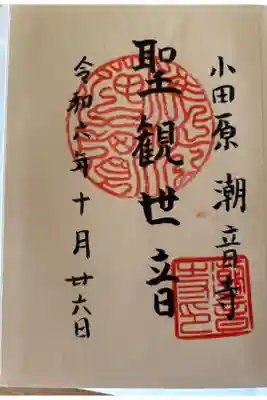 小田原 潮音寺
聖観世音
令和六年十月廿六日